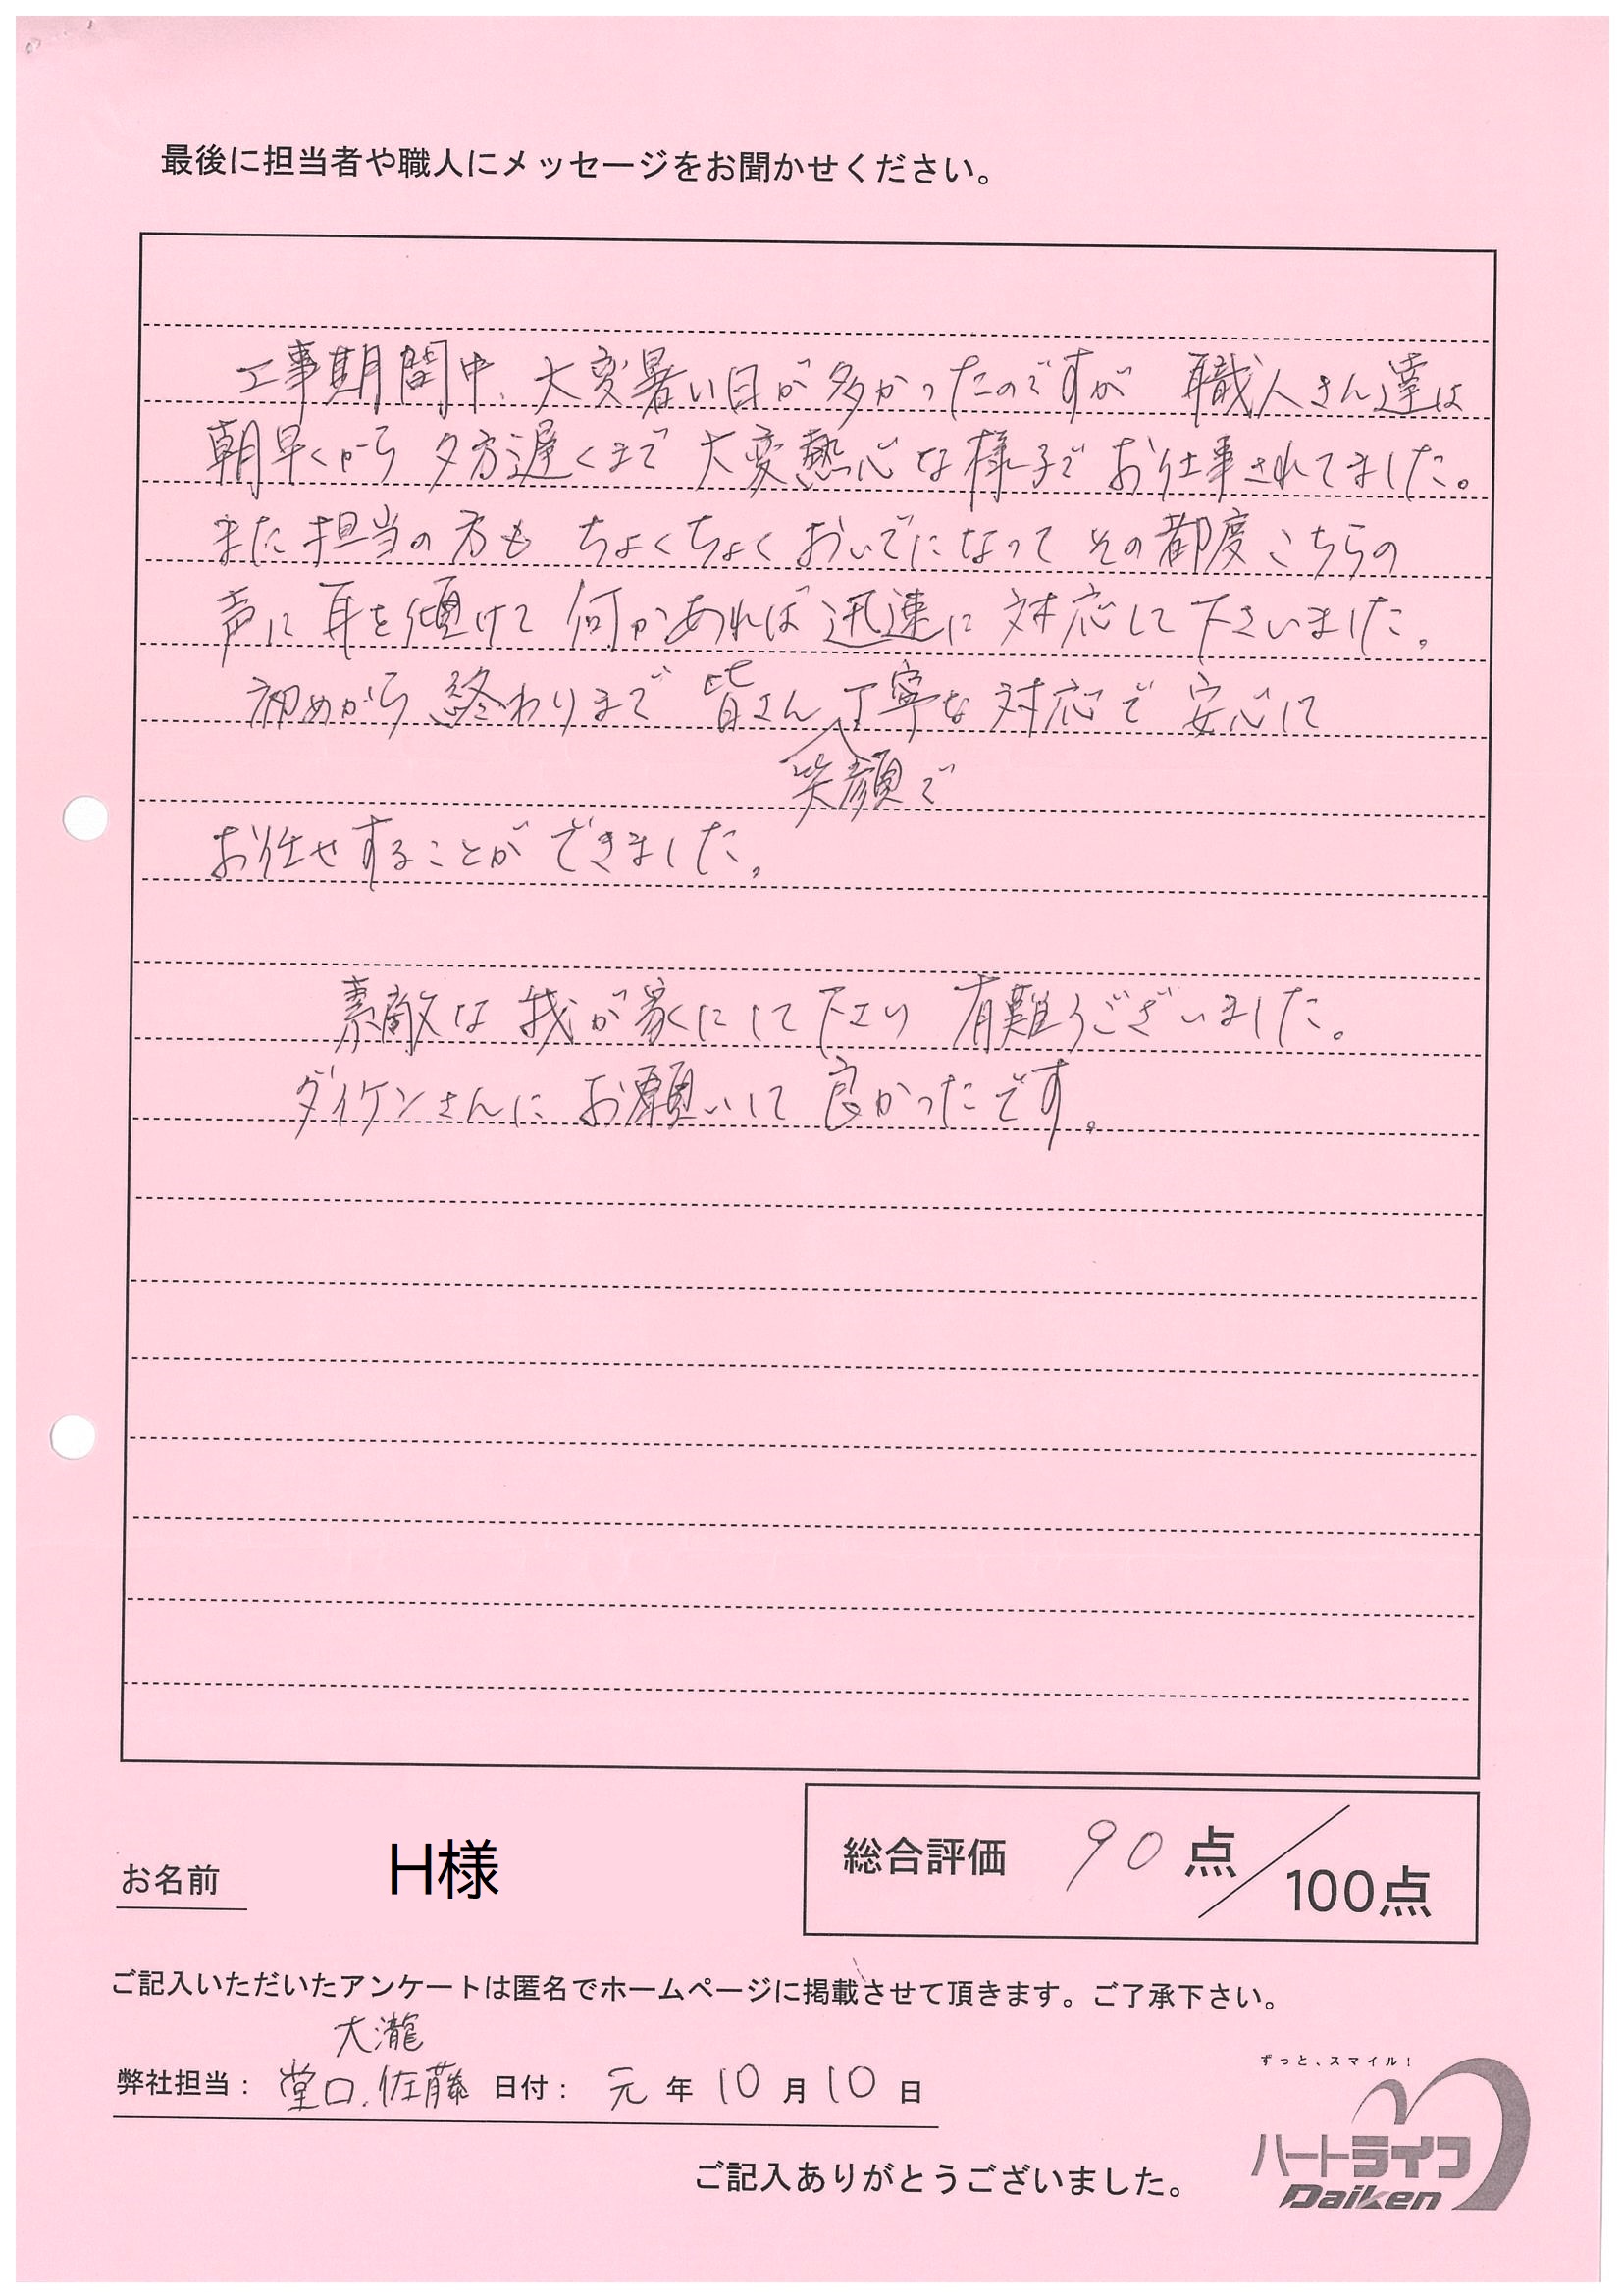 最後に担当者や職人にメッセージをお聞かせください。
工事期間中、大変暑い日が多かったのですが 職人さん達は
朝早くから 夕方遅くまで 大変熱心な様子で お仕事されてました。
また担当の方も ちょくちょく おいでになって その都度こちらの
声に 耳を傾けて 何かあれば 迅速に 対応して 下さいました。
初めから 終わりまで 皆さん 丁寧な 対応で 安心して
笑顔で
お任せすることが できました。
素敵な 我が家にして下さり 有難うございました。
ダイケンさんに お願いして 良かったです。
総合評価 90 点/100点
お名前 H様
ご記入いただいたアンケートは匿名でホームページに掲載させて頂きます。ご了承下さい。
大瀧
弊社担当: 堂口、佐藤 日付: 元 年 10 月 10 日
ずっと、スマイル!
ハートライフ
Daiken
ご記入ありがとうございました。